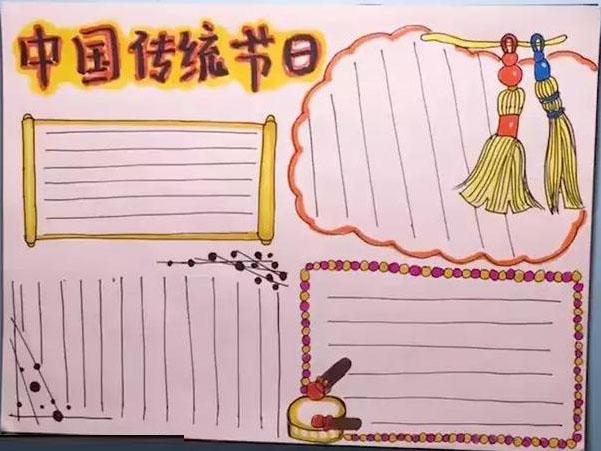 中国传统节日